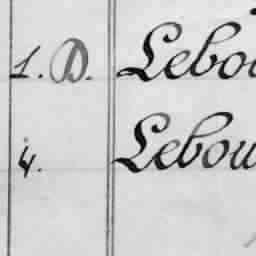 1. D. Lebou
4. Lebou